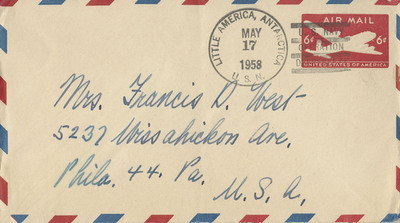 LITTLE AMERICA, ANTARCTICA
MAY
17
1958
U. S. N.
AIR MAIL
6¢ 6¢
UNITED STATES OF AMERICA
Mrs. Francis D. West
5237 Wissahickon Ave.
Phila. 44. Pa.
U. S. A.